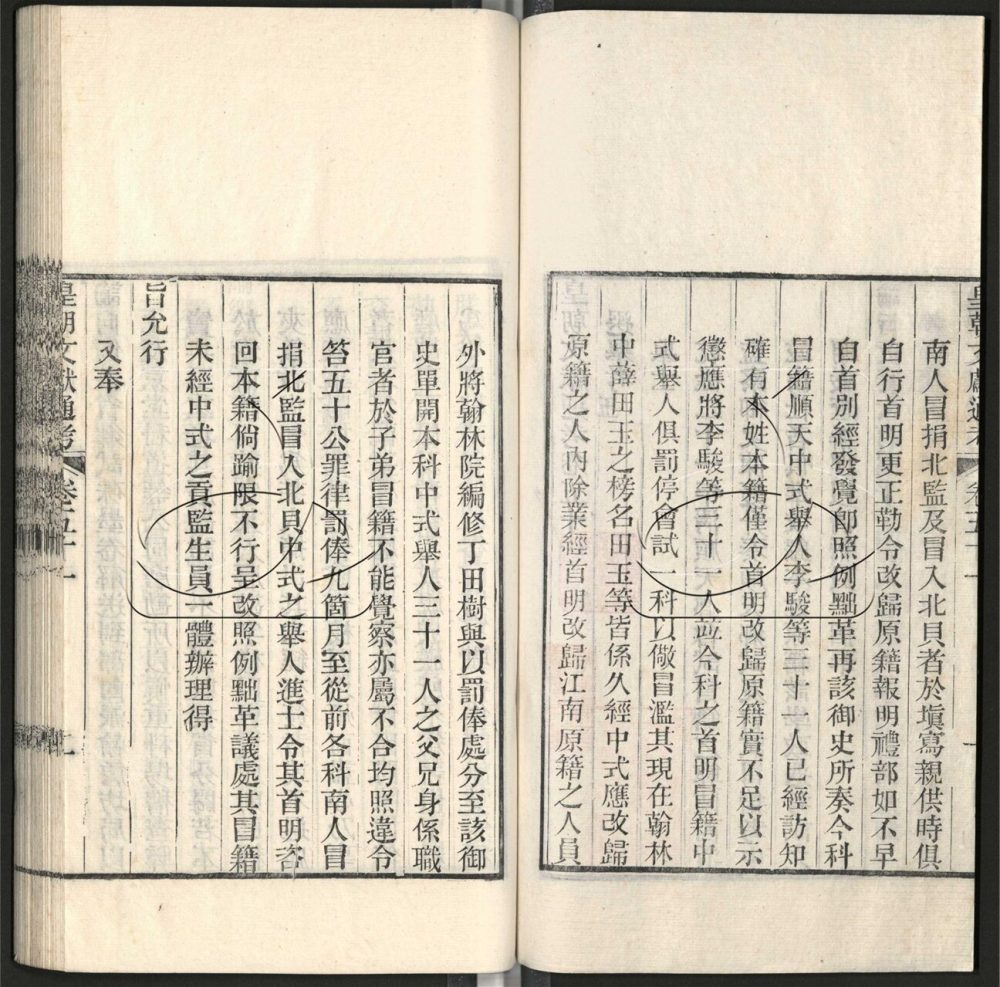 南人冒捐北監及冒入北貝者於塡寫親供時俱
自行首明更正勒令改歸原籍報明禮部如不早
自首別經發覺卽照例黜革再該御史所奏今科
冒籍順天中式舉人李駿等三十一人已經訪知
確有本姓本籍僅令首明改歸原籍實不足以示
懲應將李駿等三十一人並今科之首明冒籍中
式舉人俱罰停會試一科以儆冒濫其現在翰林
中薛田玉之榜名田玉等皆係久經中式應改歸
原籍之人內除業經首明改歸江南原籍之人員
外將翰林院編修丁田樹與以罰俸處分至該御
史單開本科中式舉人三十一人之父兄身係職
官者於子弟冒籍不能覺察亦屬不合均照違令
笞五十公罪律罰俸九箇月至從前各科南人冒
捐北監冒入北貝中式之舉人進士令其首明咨
回本籍倘踰限不行呈改照例黜革議處其冒籍
未經中式之貢監生員一體辦理得
旨允行
又奉
皇朝文獻通考 卷五十一 二